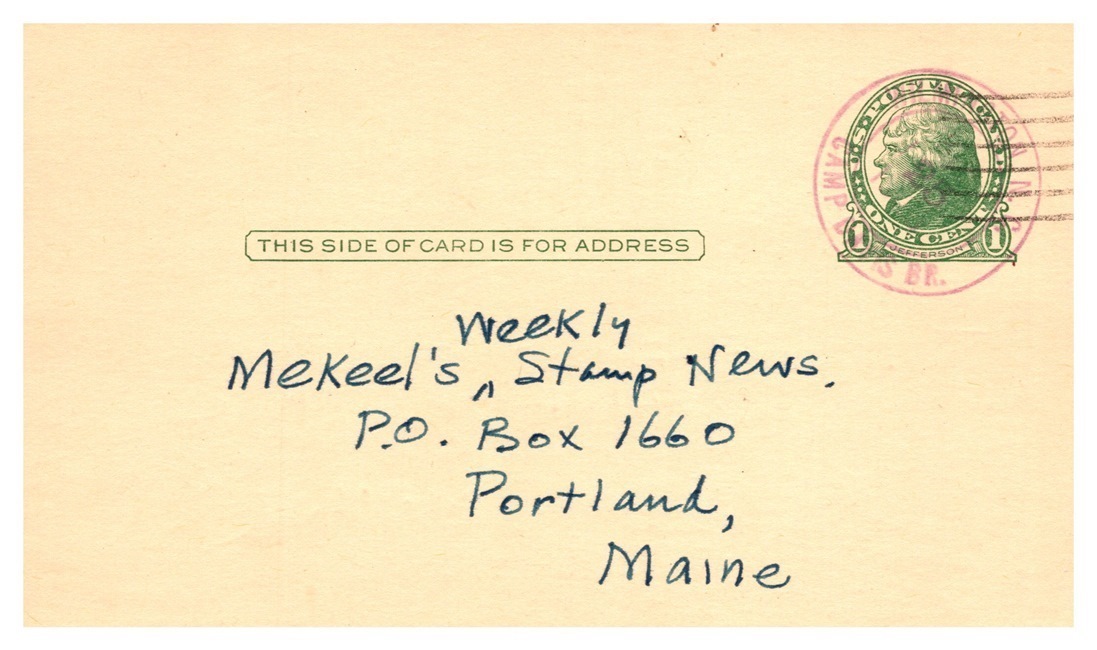 U.S. POSTAL CARD
ONE CENT
1 JEFFERSON 1
CAMP DAVIS BR.
THIS SIDE OF CARD IS FOR ADDRESS
Weekly
Mekeel's ^ Stamp News.
P.O. Box 1660
Portland,
Maine